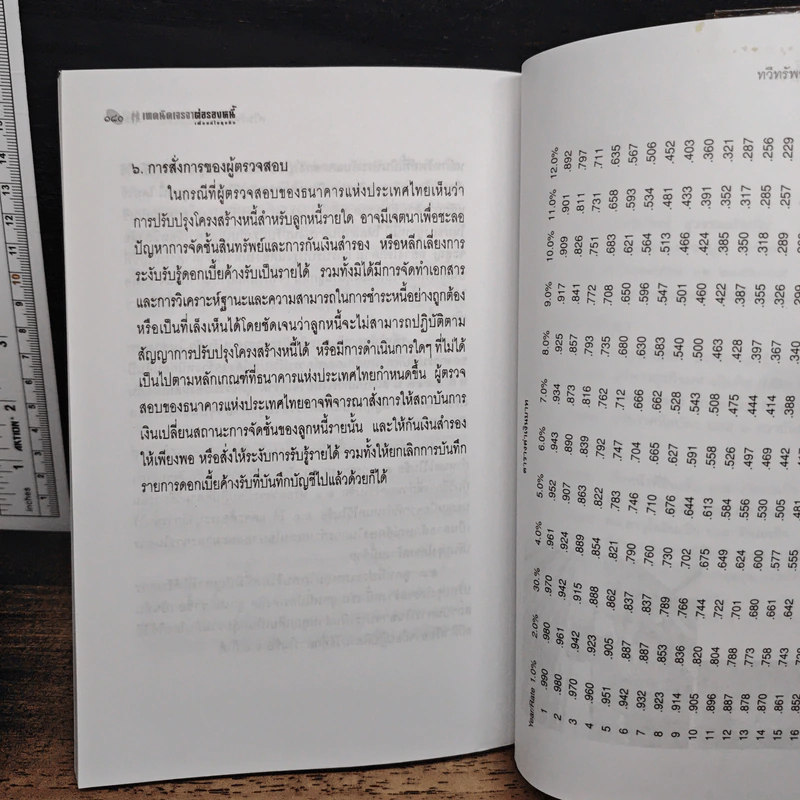 เทคนิคเจรจาต่อรองหนี้
๖. การสั่งการของผู้ตรวจสอบ
ในกรณีที่ผู้ตรวจสอบของธนาคารแห่งประเทศไทยเห็นว่า
การปรับปรุงโครงสร้างหนี้สำหรับลูกหนี้รายใด อาจมีเจตนาเพื่อชะลอ
ปัญหาการจัดชั้นสินทรัพย์และการกันเงินสำรอง หรือหลีกเลี่ยงการ
ระงับรับรู้ดอกเบี้ยค้างรับเป็นรายได้ รวมทั้งมิได้มีการจัดทำเอกสาร
และการวิเคราะห์ฐานะและความสามารถในการชำระหนี้อย่างถูกต้อง
หรือเป็นที่เล็งเห็นได้โดยชัดเจนว่าลูกหนี้จะไม่สามารถปฏิบัติตาม
สัญญาการปรับปรุงโครงสร้างหนี้ได้ หรือมีการดำเนินการใดๆ ที่ไม่ได้
เป็นไปตามหลักเกณฑ์ที่ธนาคารแห่งประเทศไทยกำหนดขึ้น ผู้ตรวจ
สอบของธนาคารแห่งประเทศไทยอาจพิจารณาสั่งการให้สถาบันการ
เงินเปลี่ยนสถานะการจัดชั้นของลูกหนี้รายนั้น และให้กันเงินสำรอง
ให้เพียงพอ หรือสั่งให้ระงับการรับรู้รายได้ รวมทั้งให้ยกเลิกการบันทึก
รายการดอกเบี้ยค้างรับที่บันทึกบัญชีไปแล้วด้วยก็ได้
ทวีทรัพย์
ตารางค่าเงินบาท
Year/Rate 1.0% 2.0% 30.% 4.0% 5.0% 6.0% 7.0% 8.0% 9.0% 10.0% 11.0% 12.0%
1 .990 .980 .970 .961 .952 .943 .934 .925 .917 .909 .901 .892
2 .980 .961 .942 .924 .907 .890 .873 .857 .841 .826 .811 .797
3 .970 .942 .915 .889 .863 .839 .816 .793 .772 .751 .731 .711
4 .960 .923 .888 .854 .822 .792 .762 .735 .708 .683 .658 .635
5 .951 .905 .862 .821 .783 .747 .712 .680 .650 .621 .593 .567
6 .942 .887 .837 .790 .746 .704 .666 .630 .596 .564 .534 .506
7 .932 .887 .837 .760 .710 .665 .662 .583 .547 .513 .481 .452
8 .923 .853 .789 .730 .676 .627 .528 .540 .501 .466 .433 .403
9 .914 .836 .766 .702 .644 .591 .543 .500 .460 .424 .391 .360
10 .905 .820 .744 .675 .613 .558 .508 .463 .422 .385 .352 .321
11 .896 .804 .722 .649 .584 .526 .475 .428 .387 .350 .317 .287
12 .887 .788 .701 .624 .556 .497 .444 .397 .355 .318 .285 .256
13 .878 .773 .680 .600 .530 .469 .414 .367 .326 .289 .257 .229
14 .870 .758 .661 .577 .505 .442 .388 .340
15 .861 .743 .642 .555 .481
16 .852